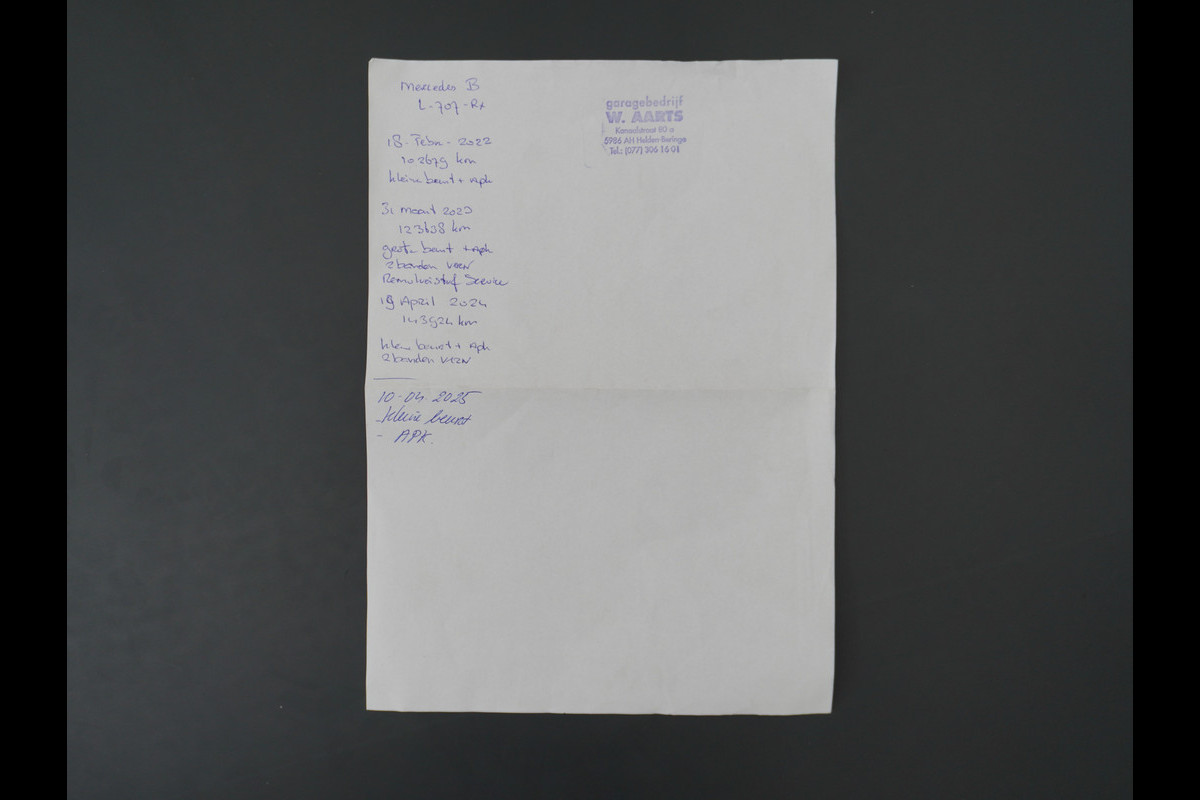 Mercedes B
L-707-RX
18-Febr-2022
102679 km
kleine beurt + apk
31 maart 2023
123638 km
grote beurt + apk
2 banden VERN
Remvloeistof Service
19 April 2024
143924 km
kleine beurt + apk
2 banden VERN
10-04-2025
- kleine beurt
- APK.
garagebedrijf
W. AARTS
Kanaalstraat 80 a
5986 AH Helden-Beringe
Tel.: (077) 306 16 01